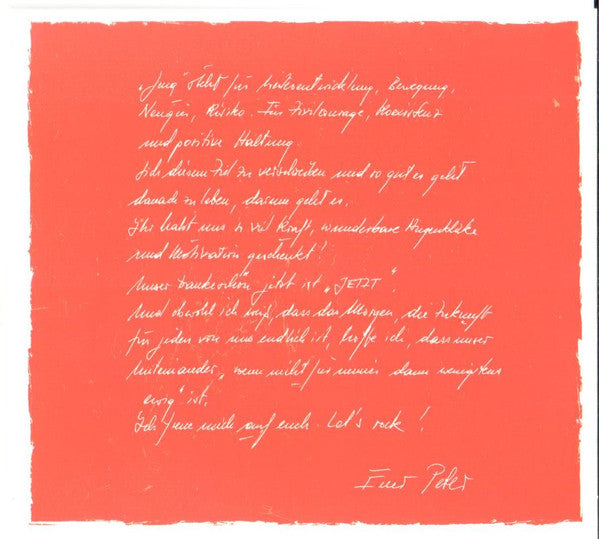 „Jung“ steht für Weiterentwicklung, Bewegung,
Neugier, Risiko. Für Zivilcourage, Konsistenz
und positive Haltung.
Sich diesem Ziel zu verschreiben und so gut es geht
danach zu leben, darum geht es.
Ihr habt uns so viel Kraft, wunderbare Augenblicke
und Motivation geschenkt!
Unser Dankeschön jetzt ist „JETZT“!
Und obwohl ich weiß, dass das Morgen, die Zukunft
für jeden von uns endlich ist, hoffe ich, dass unser
Miteinander „wenn nicht für immer dann wenigstens
ewig“ ist.
Ich freue mich auf euch. Let's rock!
Euer Peter